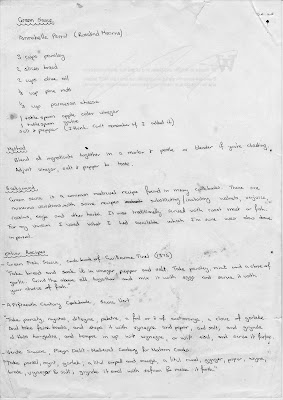 Green Sauce
Annabelle Perrot (Rosalind Manning)
3 cups parsley
2 slices bread
2 cups olive oil
1/2 cup pine nuts
1/2 cup parmesan cheese
1 tablespoon apple cider vinegar
1 tablespoon garlic
salt & pepper (I think. Can't remember if I added it)
Method
Blend all ingredients together in a mortar & pestle or blender if you're cheating.
Adjust vinegar, salt & pepper to taste.
Background
Green sauce is a common medieval recipe found in many cookbooks. There are
numerous variations with some recipes substituting/including walnuts, anjovie,
raisins, eggs and other herbs. It was traditionally served with roast meat or fish.
For my version I used what I had available which I'm sure was also done
in period.
Other Recipes
- Green Fish Sauce, Cook book of
"Take bread and soak it in vinegar, pepper and salt. Take parsley, mint and a clove of
garlic. Grind the above all together and mix it with eggs and serve it with
your choice of fish."
- A Fifteenth Century Cookbook, Sauce Vert
"Take parsely, myntes, a foil or ii of costmarye, a clove of garleke
And take faire brede, and stepe it with vynegre and peper, and salt, and grynde
al this togedre, and tempre it up with vynegre, or with eisel, and serve it forth."
- Verde Sauce, Pleyn Delit - Medieval Cookery for Modern Cooks
"Take persel, mynt, garlek, a litul serpell and sawge, a litul canel, gynger, piper, wyne,
brede, vyneger & salt; grynde it smal with safron & messe it forth."